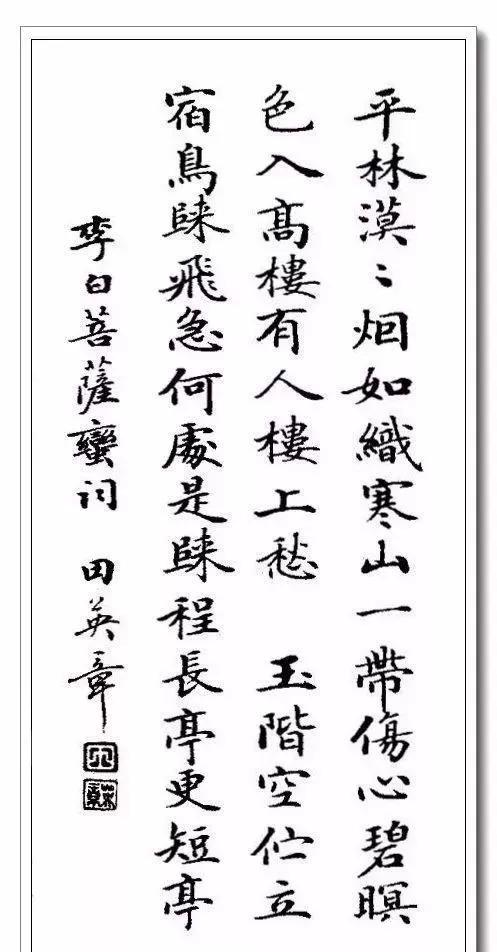 平林漠〻烟如織寒山一帶傷心碧暝
色入高樓有人樓上愁　玉階空伫立
宿鳥歸飛急何處是歸程長亭更短亭
李白菩薩蠻詞　田英章